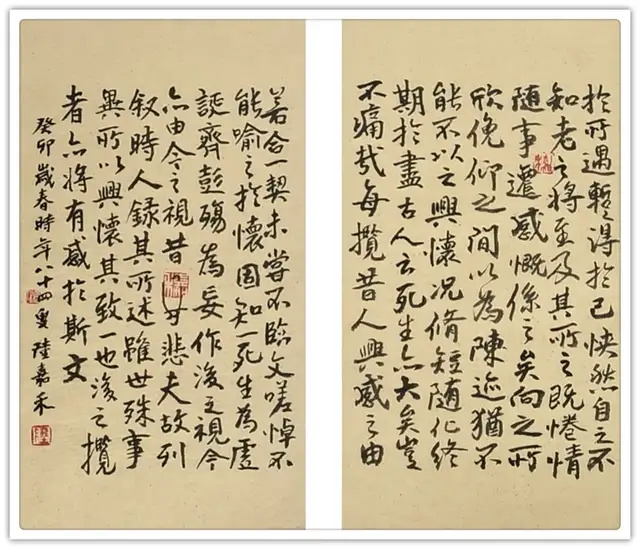 於所遇暫得於己怏然自足不
知老之將至及其所之既惓情
隨事遷感慨係之矣向之所
欣俛仰之間以為陳迹猶不
能不以之興懷況脩短隨化終
期於盡古人云死生亦大矣豈
不痛哉每攬昔人興感之由
若合一契未嘗不臨文嗟悼不
能喻之於懷固知一死生為虛
誕齊彭殤為妄作後之視今
亦由今之視昔悲夫故列
叙時人錄其所述雖世殊事
異所以興懷其致一也後之攬
者亦將有感於斯文
癸卯歲春時年八十四叟陸嘉禾